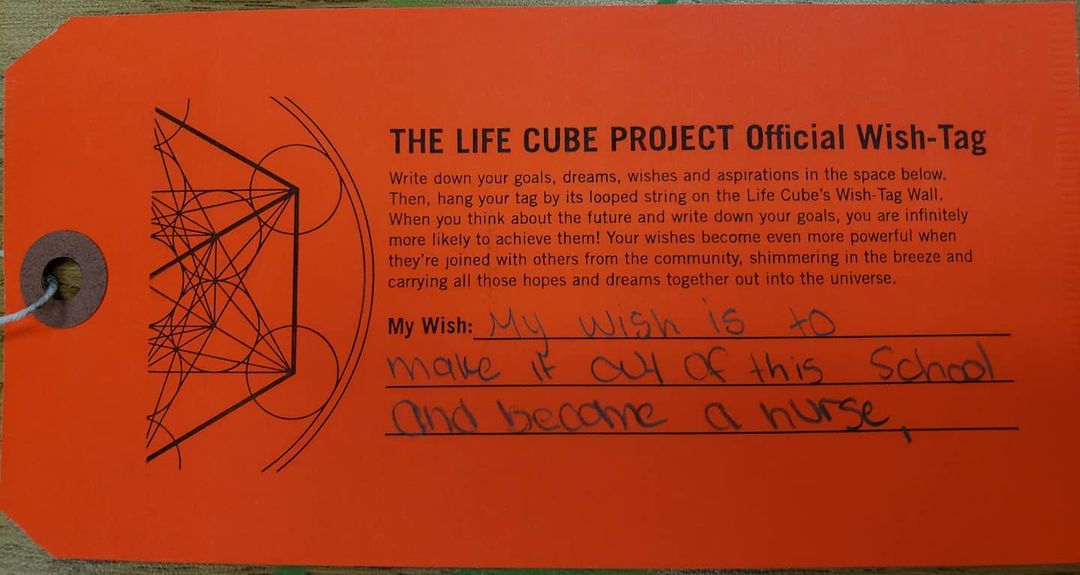 THE LIFE CUBE PROJECT Official Wish-Tag
Write down your goals, dreams, wishes and aspirations in the space below.
Then, hang your tag by its looped string on the Life Cube's Wish-Tag Wall.
When you think about the future and write down your goals, you are infinitely
more likely to achieve them! Your wishes become even more powerful when
they're joined with others from the community, shimmering in the breeze and
carrying all those hopes and dreams together out into the universe.
My Wish: My wish is to
make it out of this School
and become a nurse,